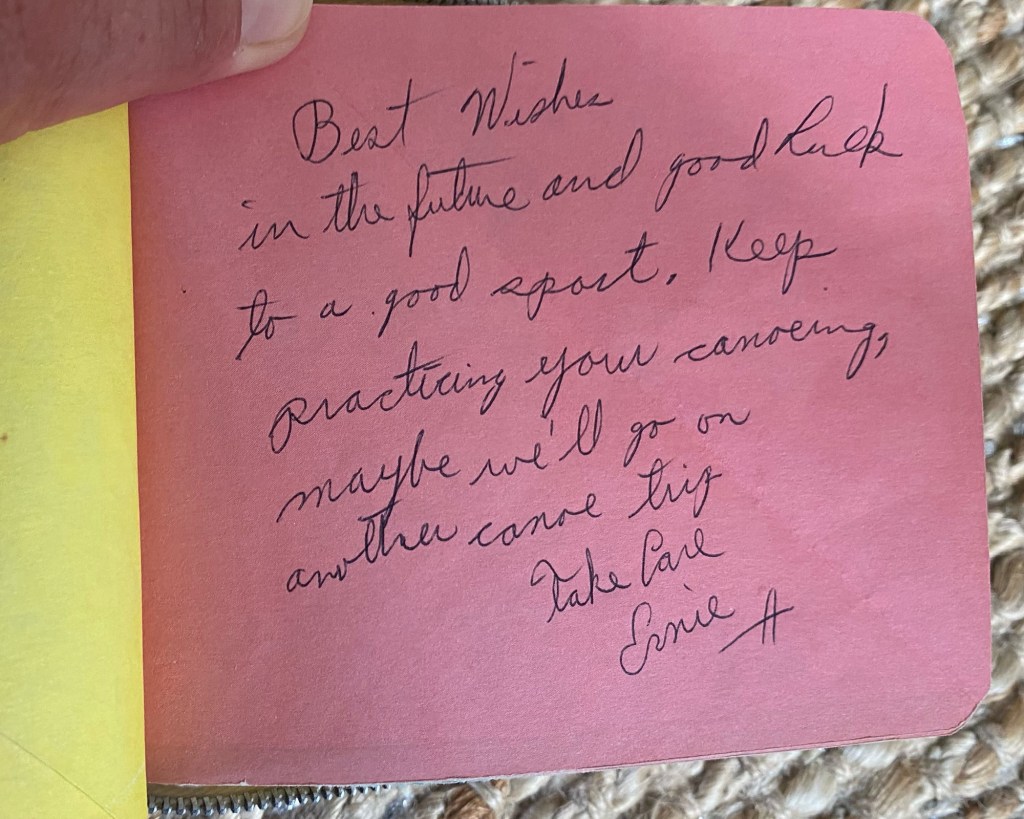 Best Wishes
in the future and good luck
to a good sport. Keep
practicing your canoeing,
maybe we'll go on
another canoe trip
Take Care
Ernie H